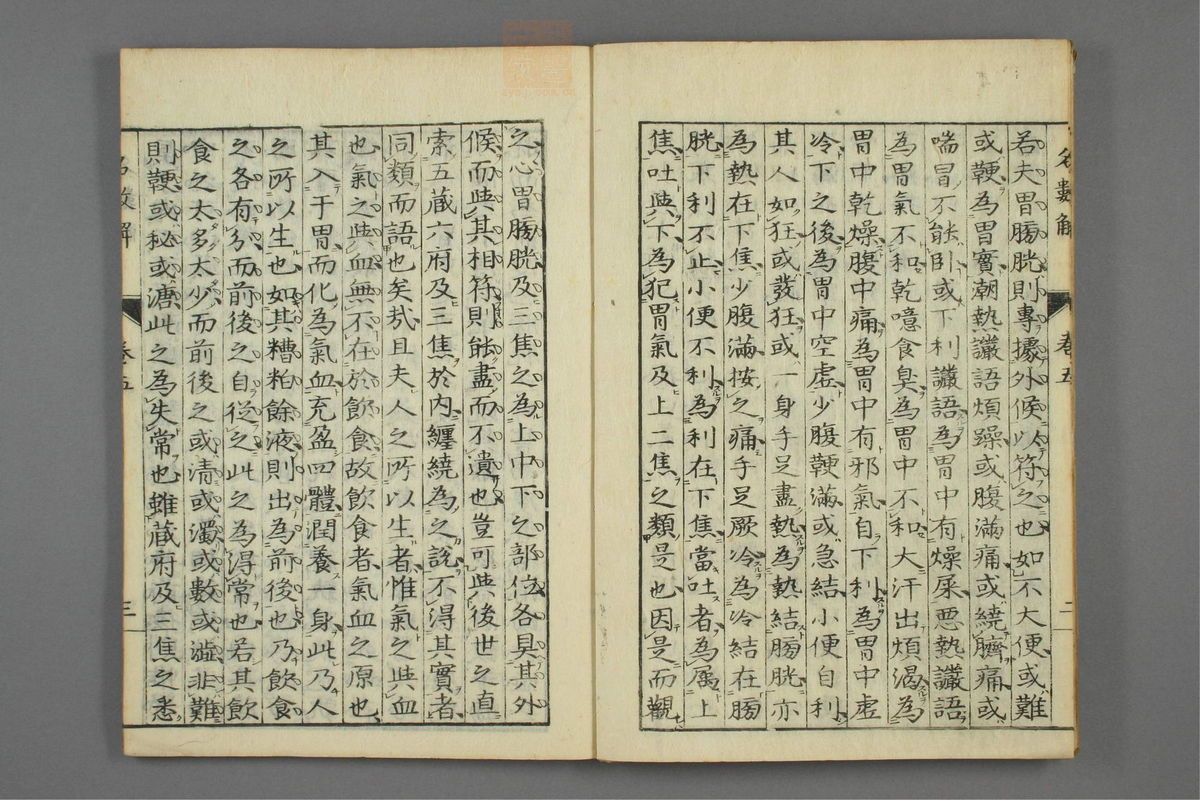 名數解
卷五
二
若夫胃膓胱則專據外候以符之也如不大便或難
或鞕為胃實潮熱讝語煩躁或腹滿痛或繞臍痛或
喘冒不能臥或下利讝語為胃中有燥屎惡熱讝語
為胃氣不和乾噫食臭為胃中不和大汗出煩渴為
胃中乾燥腹中痛為胃中有邪氣自下利為胃中虛
冷下之後為胃中空虛少腹鞕滿或急結小便自利
其人如狂或發狂或一身手足盡熱為熱結膓胱亦
為熱在下焦少腹滿按之痛手足厥冷為冷結在膓
胱下利不止小便不利為利在下焦當吐者為属上
焦吐與下為犯胃氣及上二焦之類是也因是而觀
之心胃膓胱及三焦之為上中下之部位各具其外
候而與其相符則能盡而不遺也豈可與後世之直
索五蔵六府及三焦於內纏繞為之說不得其實者
同類而語也矣㢤且夫人之所以生者惟氣之與血
也氣之與血無不在於飲食故飲食者氣血之原也
其入于胃而化為氣血充盈四體潤養一身此乃人
之所以生也如其糟粕餘液則出為前後也乃飲食
之各有分而前後之自從之此之為得常也若其飲
食之太多太少而前後之或清或濁或數或澁非難
則鞕或秘或溏此之為失常也雖蔵府及三焦之悉
名數解
卷五
三